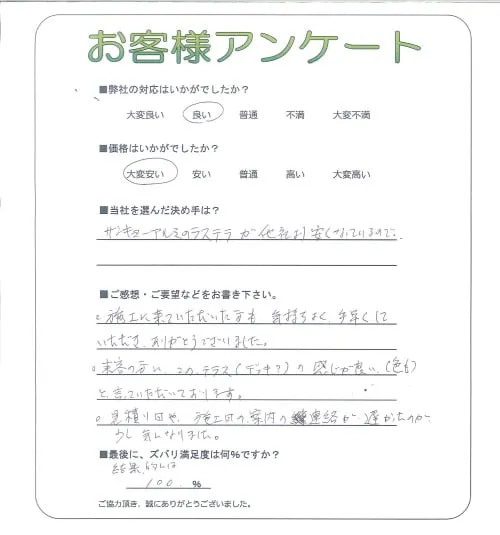 お客様アンケート
■弊社の対応はいかがでしたか？
大変良い 良い 普通 不満 大変不満
■価格はいかがでしたか？
大変安い 安い 普通 高い 大変高い
■当社を選んだ決め手は？
サンキューアルミのラステラが他社より安くなっているので。
■ご感想・ご要望などをお書き下さい。
○施工に来ていただいた方も 気持ちよく、手早くして
いただき、ありがとうございました。
○来客の方に、この、テラス(デッキ？)の感じが良い、(色も)
と言っていただいております。
○見積り日や、施工日の案内の連絡が遅かったのが、
少し気になりました。
■最後に、ズバリ満足度は何％ですか？
結果的には
100 %
ご協力頂き、誠にありがとうございました。